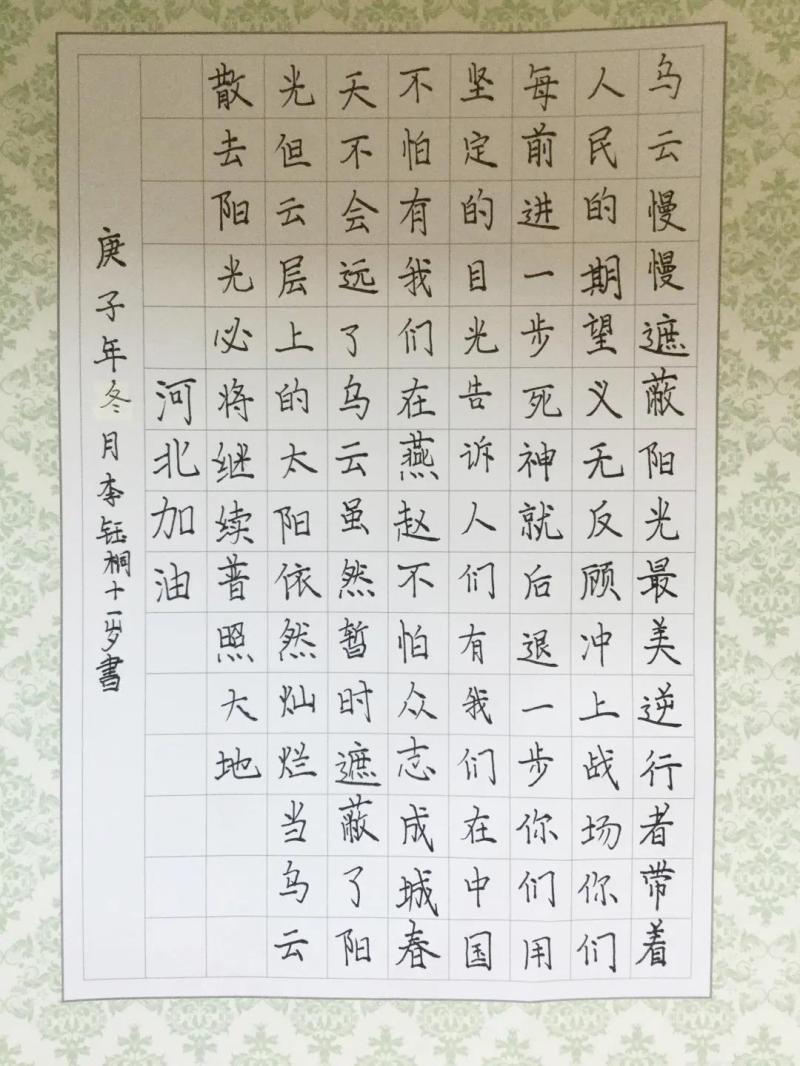 乌云慢慢遮蔽阳光最美逆行者带着
人民的期望义无反顾冲上战场你们
每前进一步死神就后退一步你们用
坚定的目光告诉人们有我们在中国
不怕有我们在燕赵不怕众志成城春
天不会远了乌云虽然暂时遮蔽了阳
光但云层上的太阳依然灿烂当乌云
散去阳光必将继续普照大地
河北加油
庚子年冬月李钰桐十一岁書